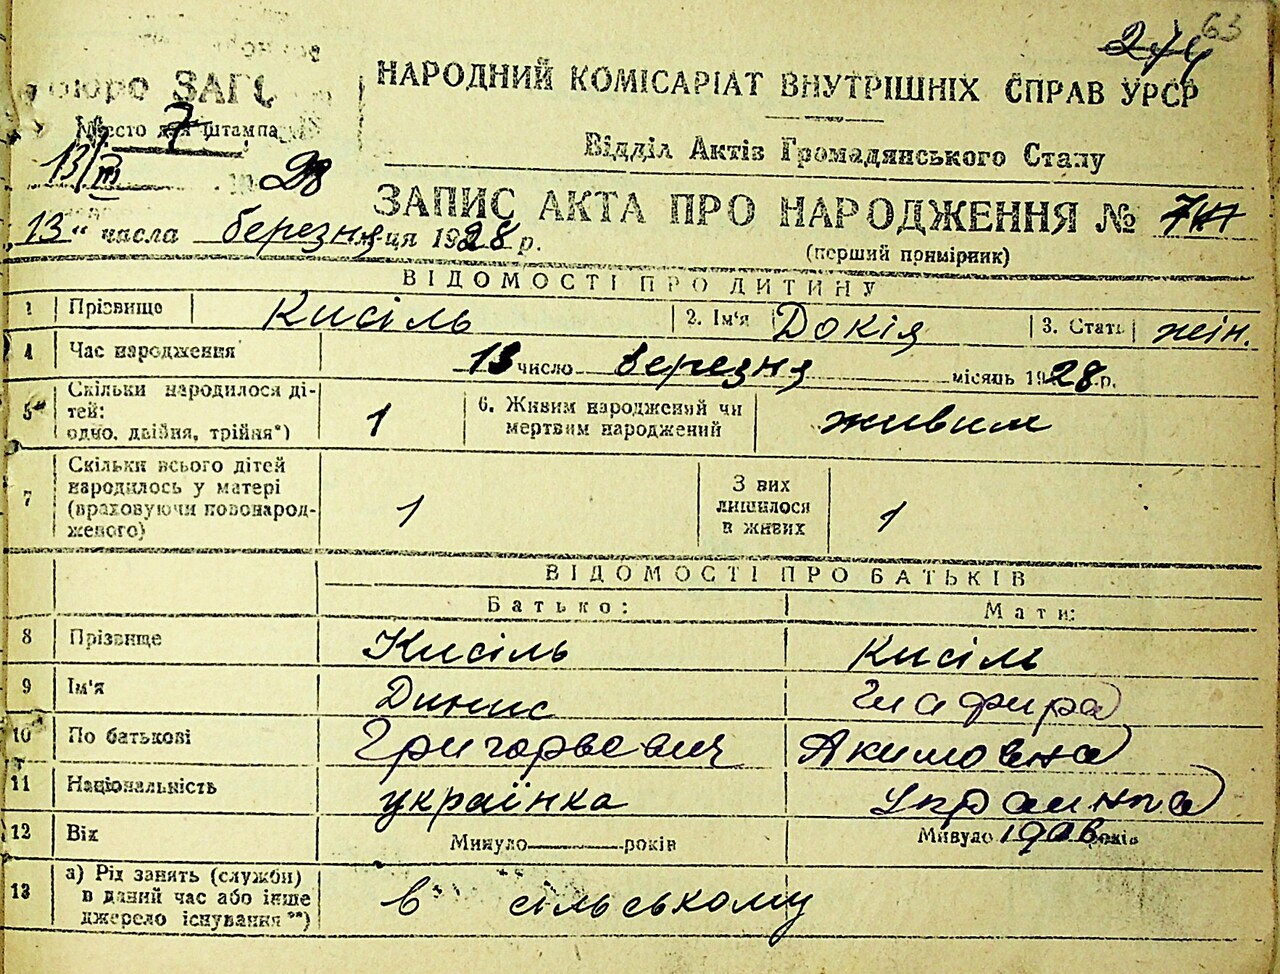 63
274
бюро ЗАГС
Место для штампа
7
13/III 1928
НАРОДНИЙ КОМІСАРІАТ ВНУТРІШНІХ СПРАВ УРСР
Відділ Актів Громадянського Стану
ЗАПИС АКТА ПРО НАРОДЖЕННЯ № 7
„13“ числа березня м-ця 1928 р.
(перший примірник)
ВІДОМОСТІ ПРО ДИТИНУ
1 Прізвище Кисіль 2. Ім'я Докія 3. Стать жін.
4 Час народження 13 число березня місяць 1928 р.
5 Скільки народилося дітей: одно, двійня, трійня*) 1 6. Живим народжений чи мертвим народжений живим
7 Скільки всього дітей народилось у матері (враховуючи новонародженого) 1 З них лишилося в живих 1
ВІДОМОСТІ ПРО БАТЬКІВ
Батько: Мати:
8 Прізвище Кисіль Кисіль
9 Ім'я Динис Глафира
10 По батькові Григорьевич Акимовна
11 Національність українка украинка
12 Вік Минуло років Минуло 1906 років
13 а) Рід занять (служби) в даний час або інше джерело існування**) в сільському